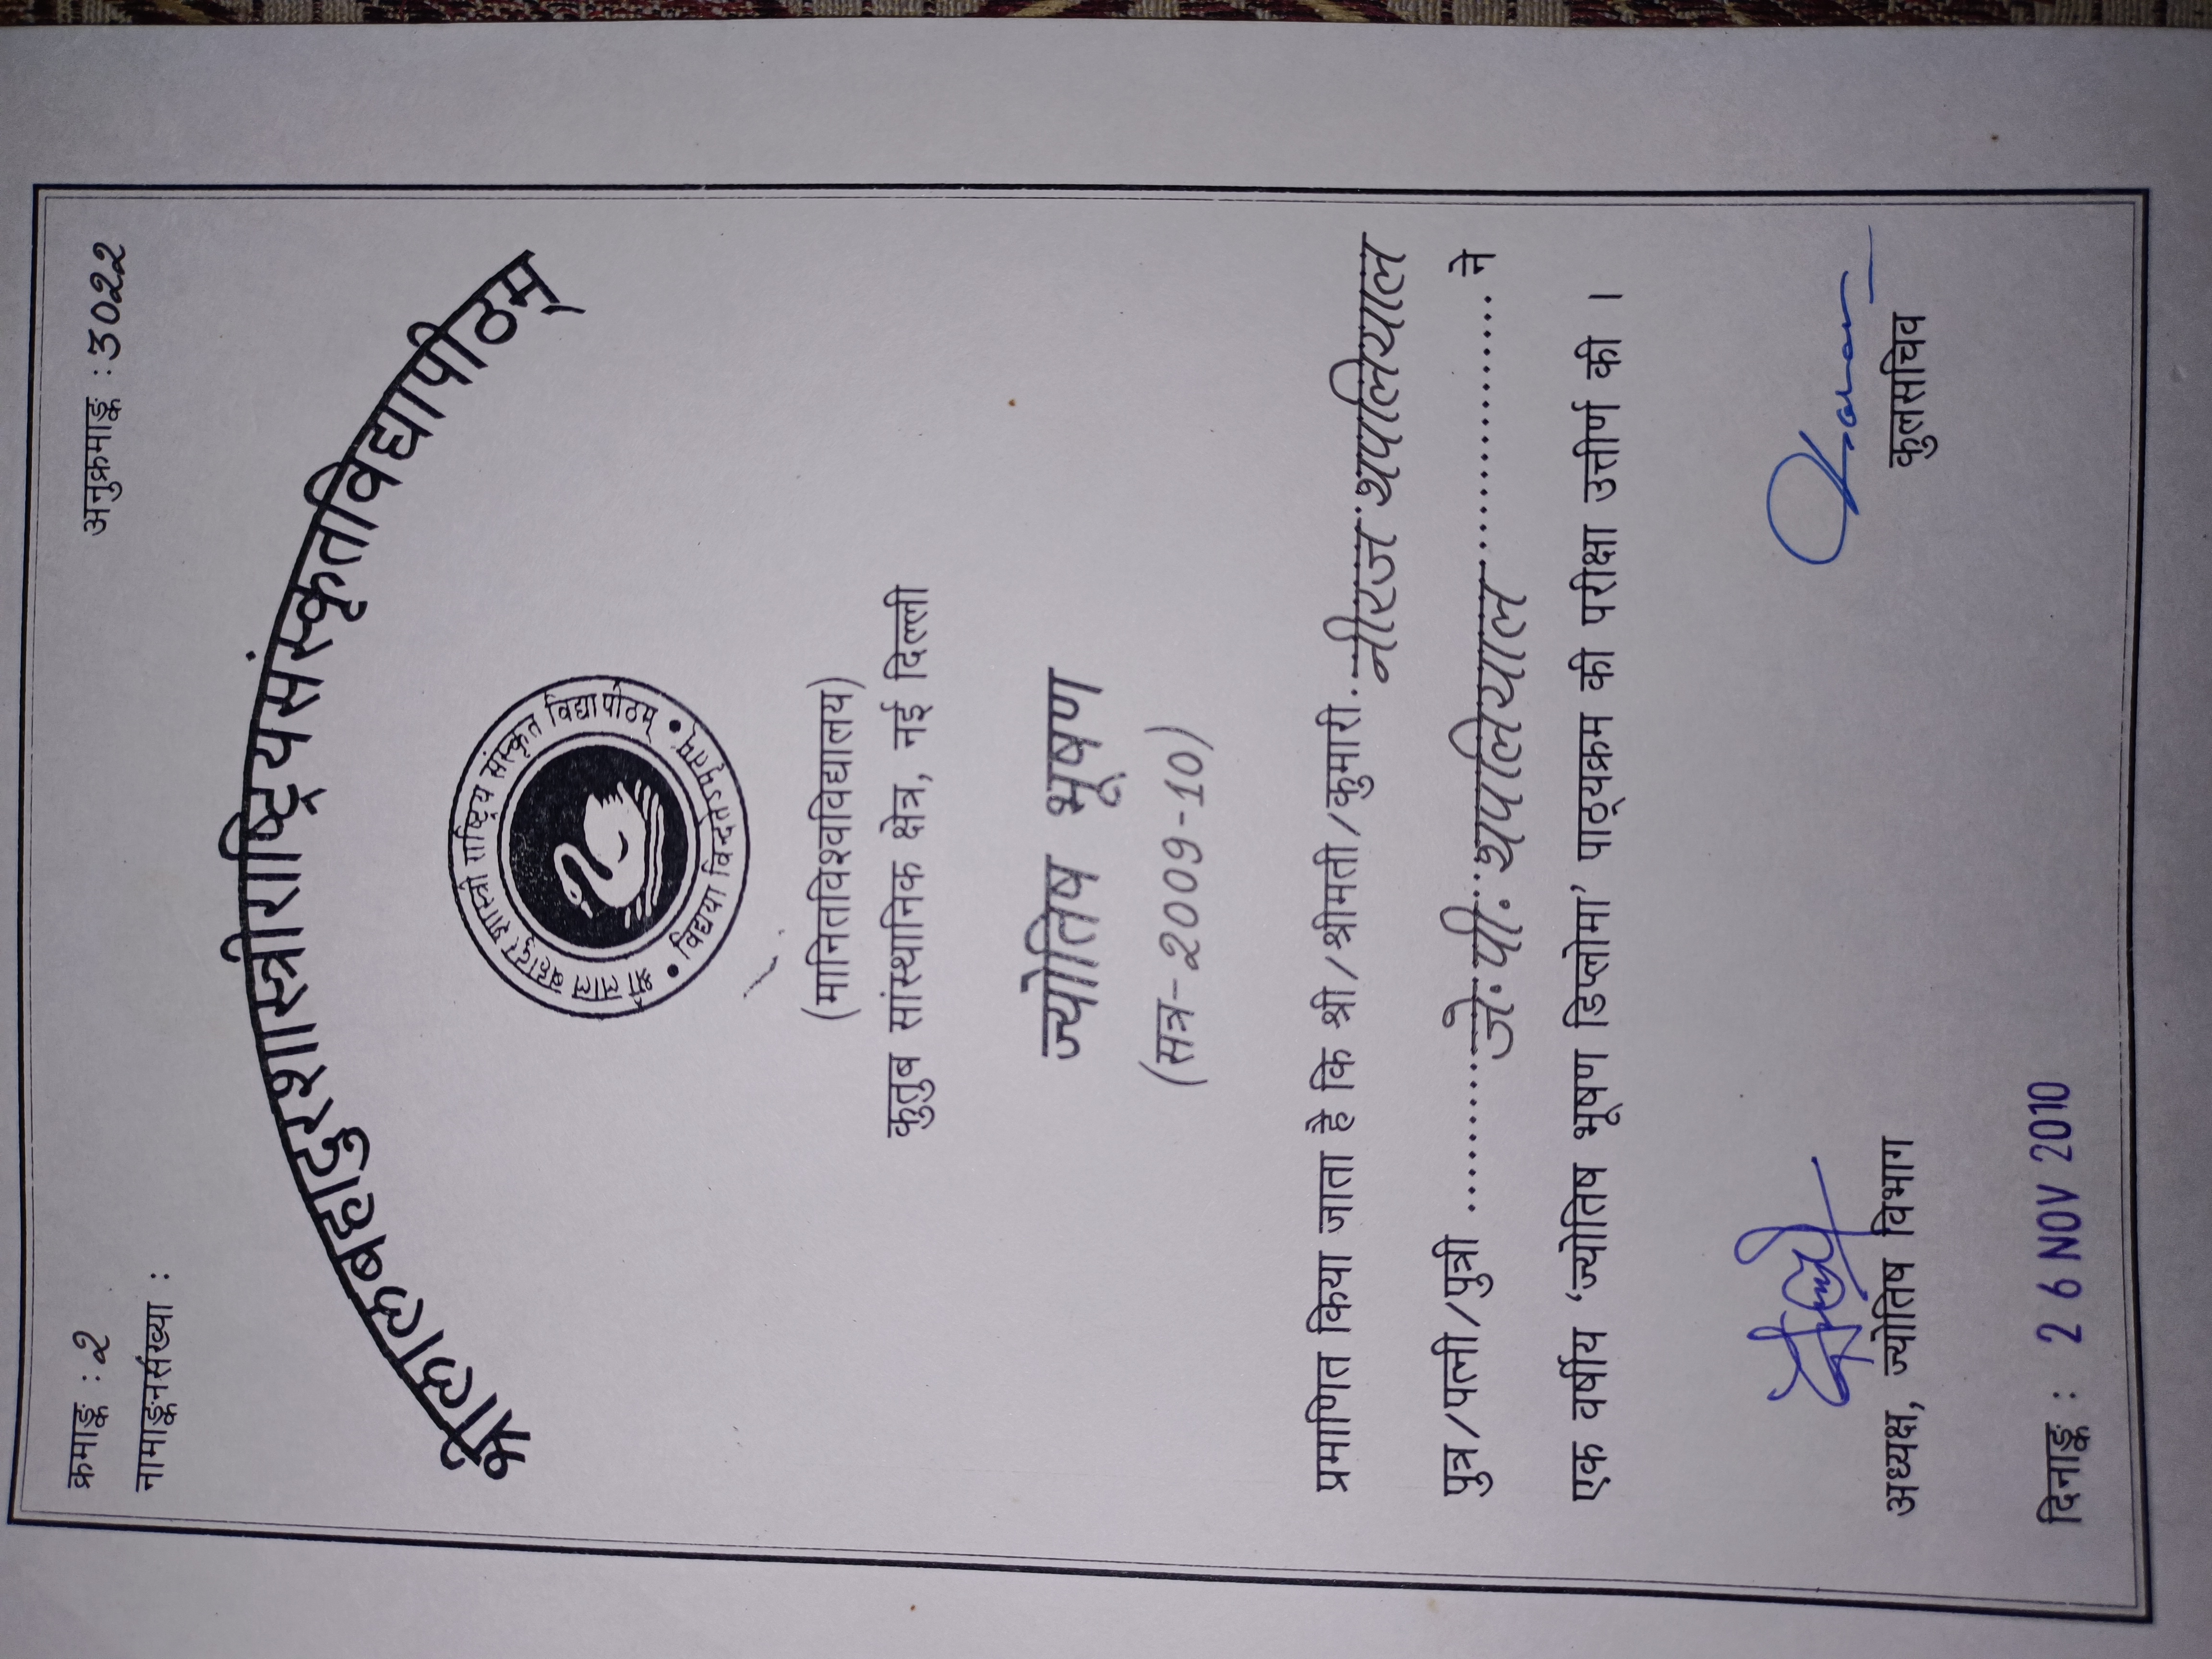 क्रमाङ्क : 2
अनुक्रमाङ्क : 3022
नामाङ्कनसंख्या :
श्रीलालबहादुरशास्त्रीराष्ट्रियसंस्कृतविद्यापीठम्
श्री लाल बहादुर शास्त्री राष्ट्रिय संस्कृत विद्यापीठम्
• विद्यया विन्दतेऽमृतम् •
(मानितविश्वविद्यालय)
कुतुब सांस्थानिक क्षेत्र, नई दिल्ली
ज्योतिष भूषण
(सत्र-2009-10)
प्रमाणित किया जाता है कि श्री/श्रीमती/कुमारी. नीरज थपलियाल
पुत्र/पत्नी/पुत्री .......... जे. पी. थपलियाल ................ ने
एक वर्षीय ‘ज्योतिष भूषण डिप्लोमा’ पाठ्यक्रम की परीक्षा उत्तीर्ण की ।
अध्यक्ष, ज्योतिष विभाग
कुलसचिव
दिनाङ्क : 26 NOV 2010